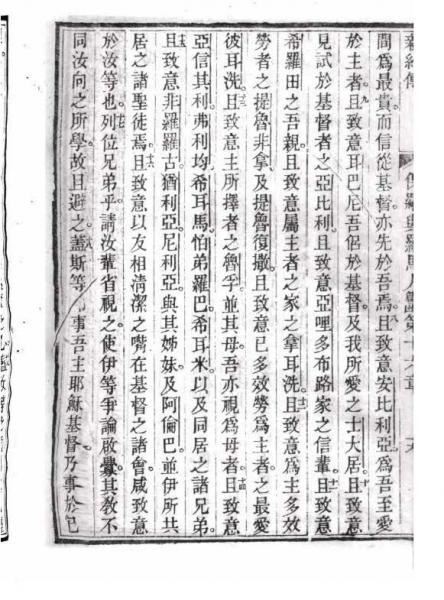 新約傳 保羅與羅馬人書第十六章
間爲最貴而信從基督亦先於吾焉且致意安比利亞爲吾至愛
於主者且致意耳巴尼吾侶於基督及我所愛之士大居且致意
見試於基督者之亞比利且致意亞哩多布路家之信輩且致意
希羅田之吾親且致意屬主者之家之拿耳洗且致意爲主多效
勞者之提魯非拿及提魯復撒且致意已多效勞爲主者之最愛
彼耳洗且致意主所擇者之魯孚並其母吾亦視爲母者且致意
亞信其利弗利均希耳馬怕弟羅巴希耳米以及同居之諸兄弟
且致意非羅羅古猶利亞尼利亞與其姊妹及阿倫巴並伊所共
居之諸聖徒焉且致意以友相清潔之嘴在基督之諸會咸致意
於汝等也列位兄弟乎請汝輩省視之使伊等爭論啟釁其教不
同汝向之所學故且避之蓋斯等事吾主耶穌基督乃事於己